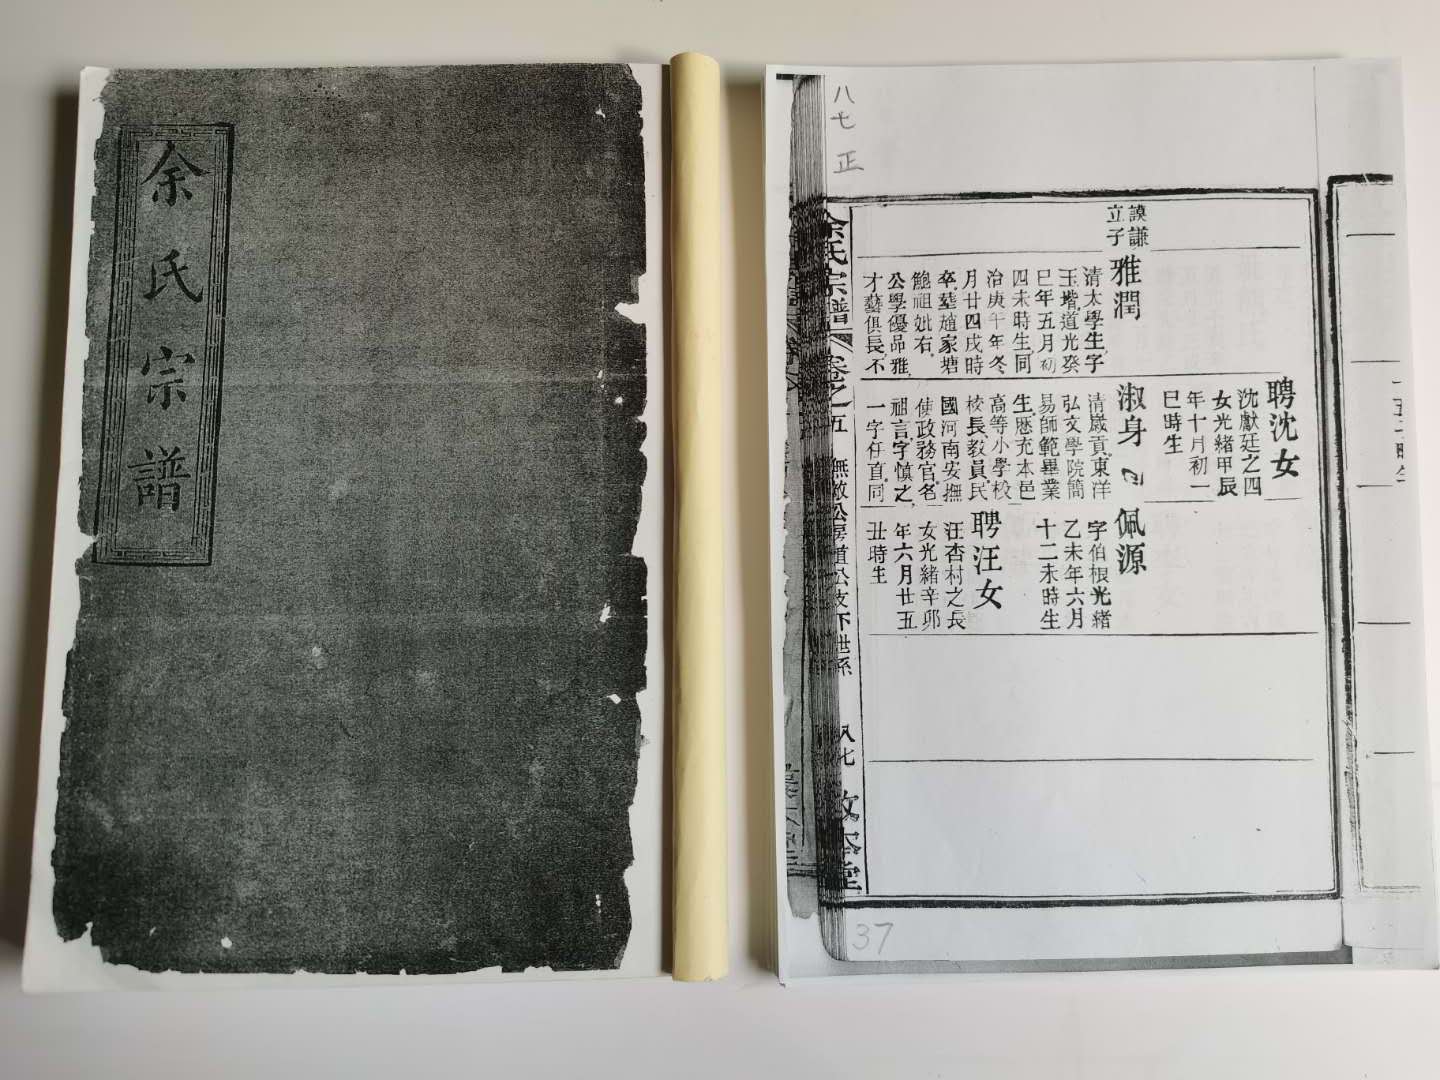 余氏宗譜
八七
正
謨謙
立子
雅潤
清太學生,字
玉堦,道光癸
巳年五月初
四未時生,同
治庚午年冬
月廿四戌時
卒,塟趙家塘
鮑祖妣右,
公學優品雅,
才藝俱長,不
聘沈女
沈獻廷之四
女光緒甲辰
年十月初一
巳時生
淑身
清歲貢,東洋
弘文學院簡
易師範畢業
生,歷充本邑
高等小學校
校長,教員,民
國河南安撫
使政務官,名
祖言,字慎之,
一字任直,同
佩源
字伯根光緒
乙未年六月
十二未時生
聘汪女
汪杏村之長
女光緒辛卯
年六月廿五
丑時生
余氏宗譜 卷之五 無敵公房道公支下世系 八七
37